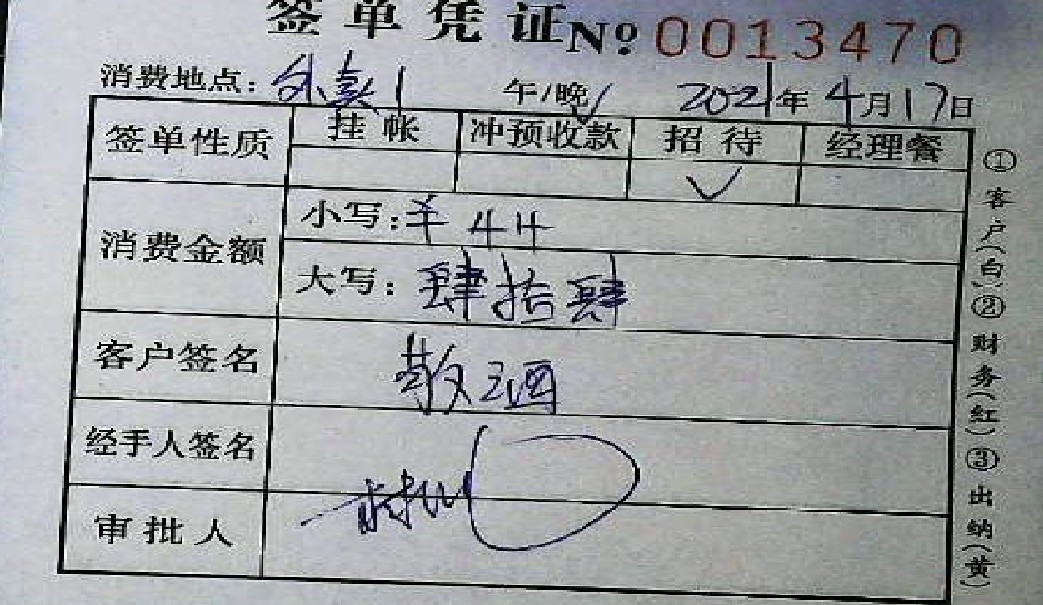 签单凭证 № 0013470
消费地点：外卖1 午/晚√ 2021年4月17日
签单性质 挂帐 冲预收款 招待 经理餐
√
消费金额 小写：¥ 44
大写：肆拾肆
客户签名 敬酒
经手人签名
审批人
①客户(白)②财务(红)③出纳(黄)